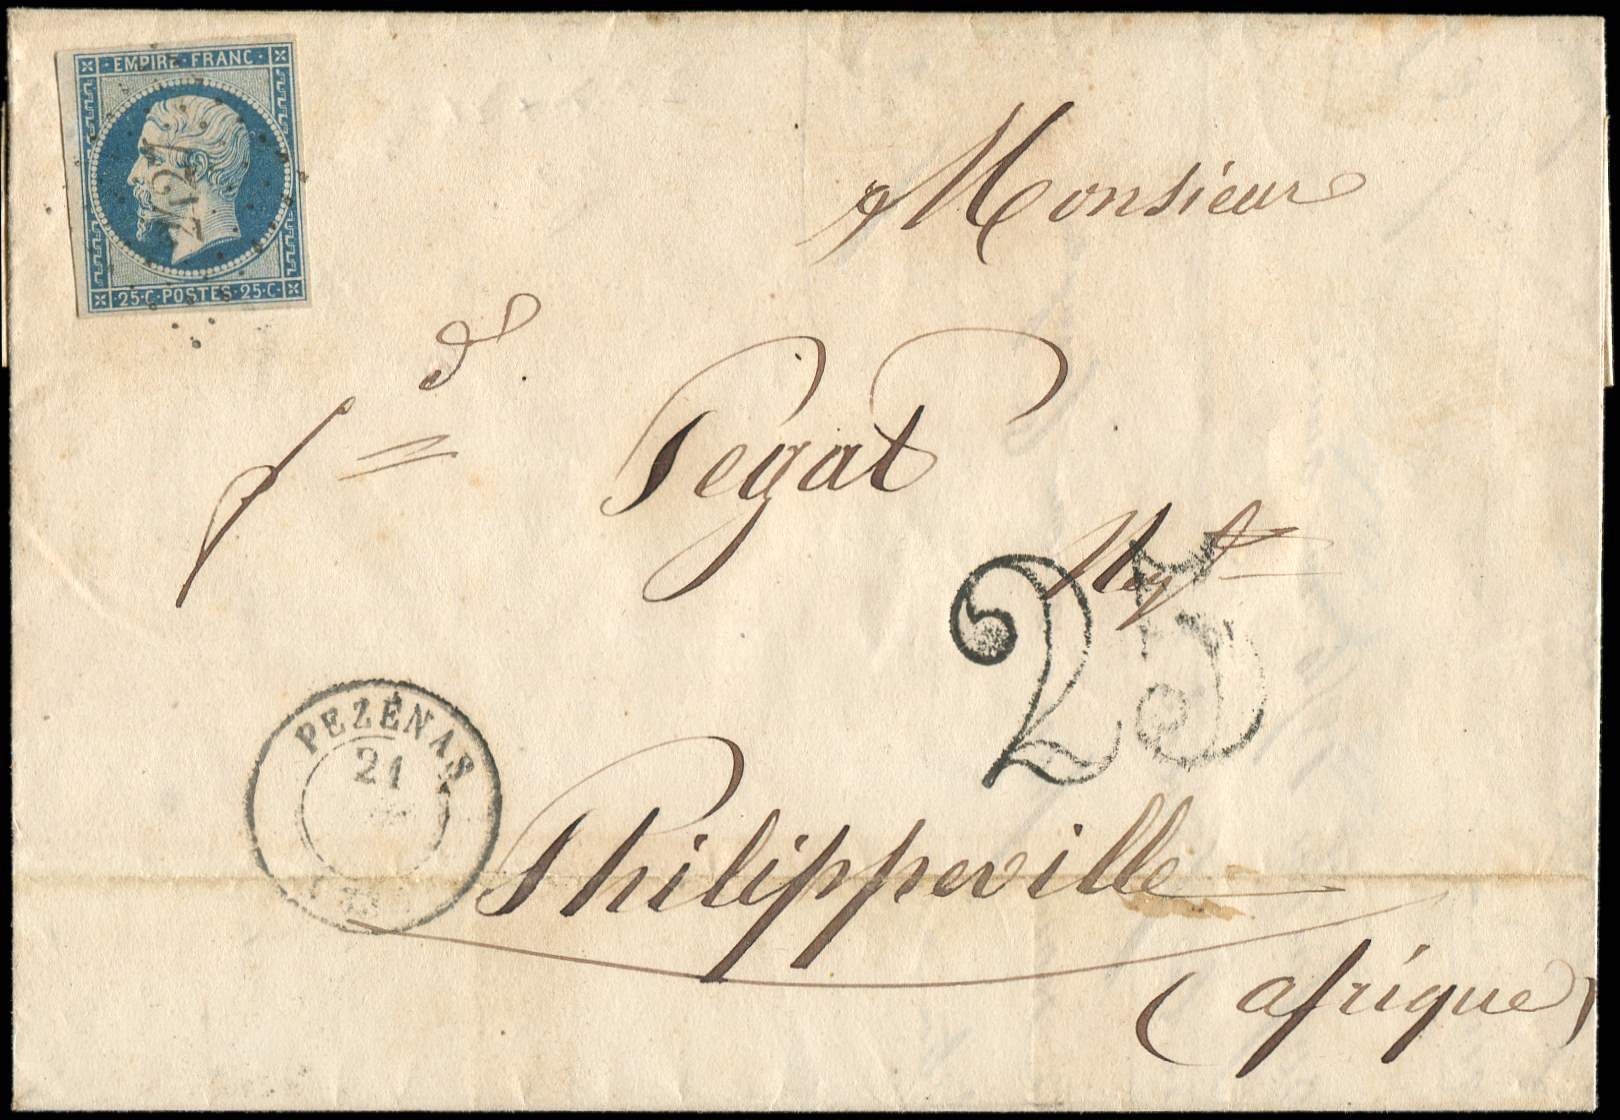 EMPIRE·FRANC·
25·C·POSTES·25·C·
Monsieur
Pegat
Negt
25
PEZÉNAS
21
Philippeville
(afrique)